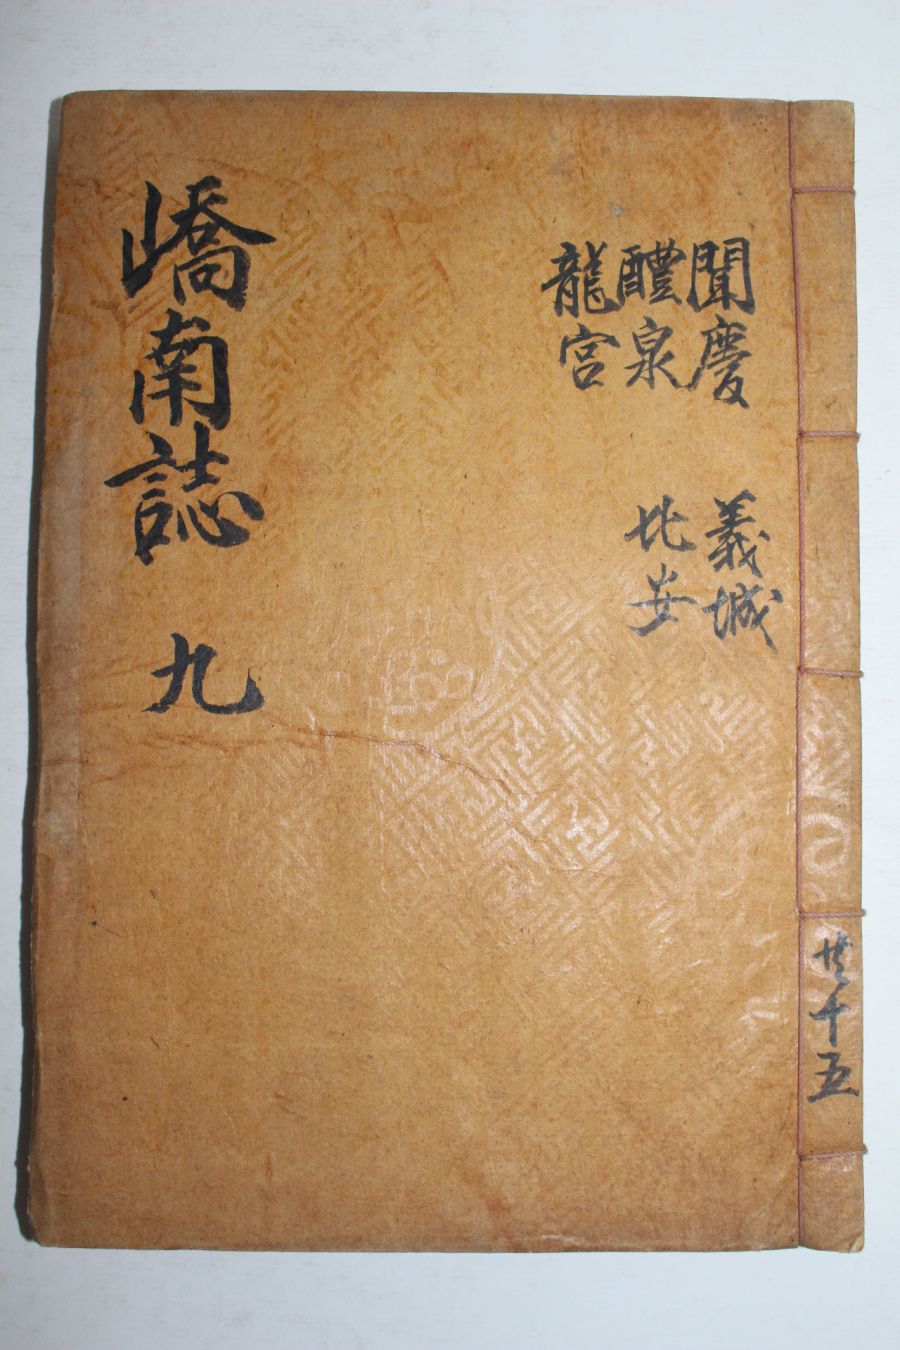 嶠南誌 九
聞慶
醴泉
龍宮
義城
比安
共十五